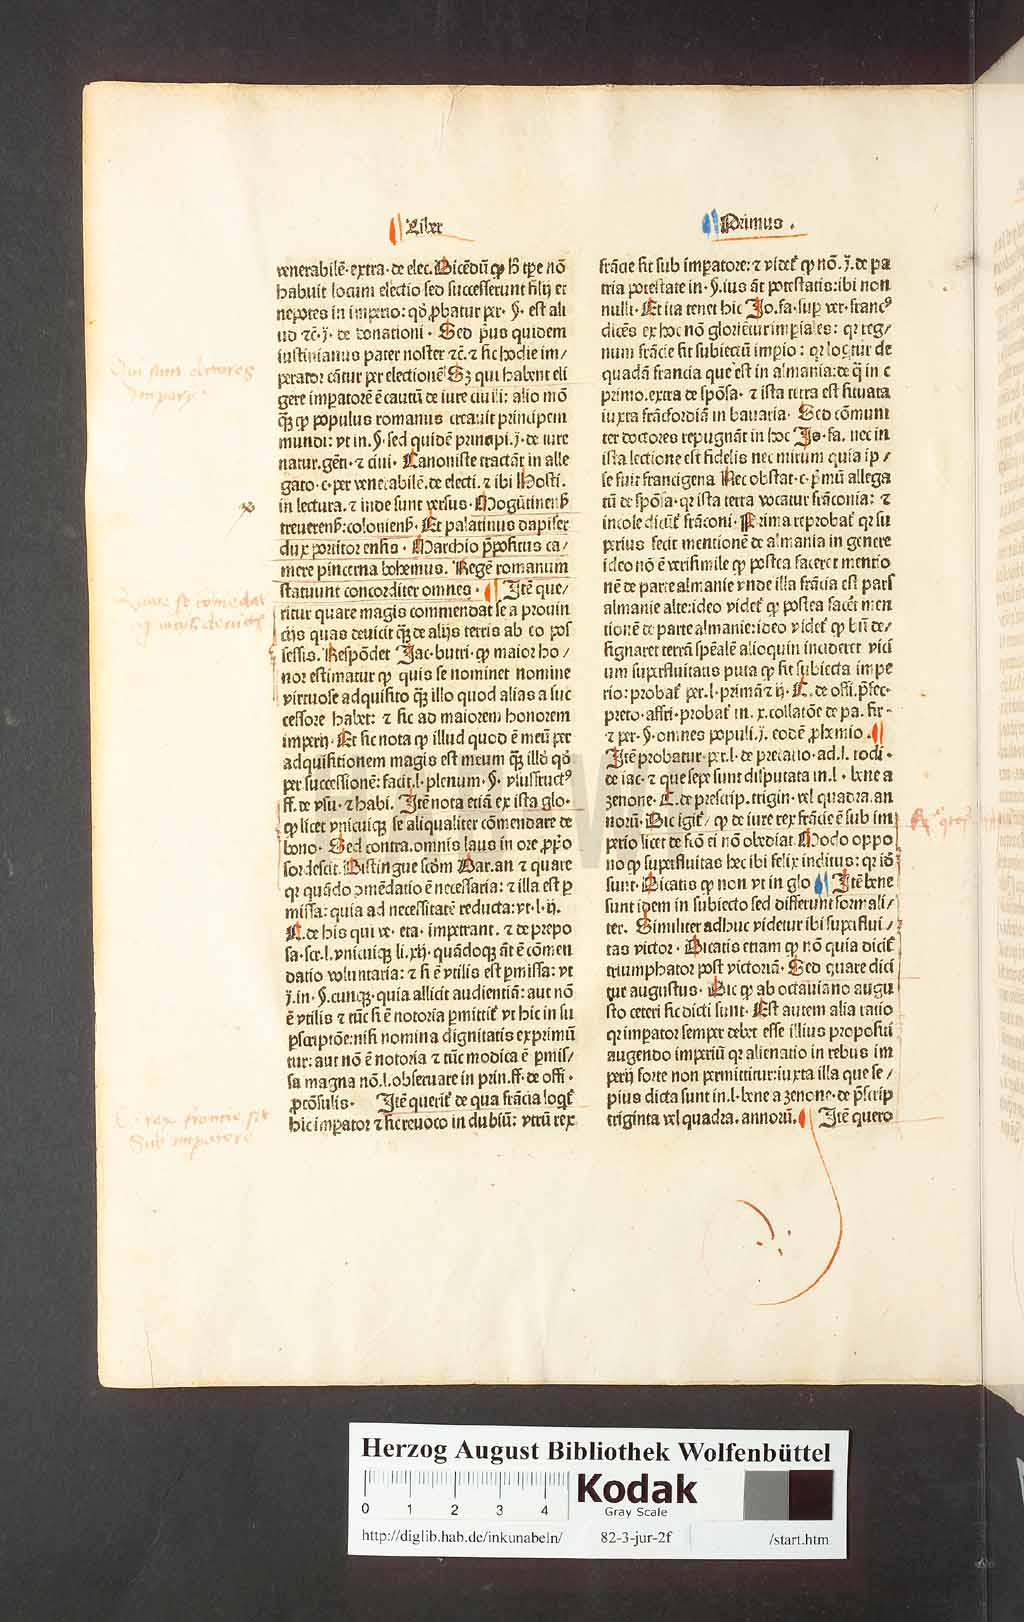 Liber
Primus .
venerabilē· extra· de elec. Dicēdū ꝙ hͦ tꝑe nō
habuit locum electio sed successerunt filij et
nepotes in imperio: qđ ꝓbatur per· §· est ali
ud ⁊c̄· j̄· de donationi · Sed pͥus quidem
iustinianus pater noster ⁊c̄. ⁊ sic hodie im⸗
perator cātur per electionē Sꝫ qui habent eli
gere imperatorē ē cautū de iure ciuili: alio mō
qꝫ̄ ꝙ populus romanus creauit principem
mundi: vt in. §. sed quidē principi. j̄· de iure
natur. gēn. ⁊ ciui · Canoniste tractāt in alle
gato· c· per venerabilē. de electi. ⁊ ibi Hosti.
in lectura. ⁊ inde sunt versus · Mogūtinenß
treuerenß: colonienß· Et palatinus dapifer
dux portitor ensis · Marchio p̄positus ca⸗
mere pincerna bohemus. Regē romanum
statuunt concorditer omnes · Itē que⸗
ritur quare magis commendat se a prouin
cijs quas deuicit qꝫ̄ de alijs terris ab eo pos
sessis. Respōdet Jac· butri· ꝙ maior ho⸗
nor estimatur ꝙ quis se nominet nomine
virtuose adquisito qꝫ̄ illo quod alias a suc
cessore habet: ⁊ sic ad maiorem honorem
imperij· Et sic nota ꝙ illud quod ē meū per
adquisitionem magis est meum qꝫ̄ illđ qđ
per successionē: facit. l· plenum· §· vsusfructꝰ
ff. de vsu· ⁊ habi. Itē nota etiā ex ista glo·
ꝙ licet vnicuiqꝫ se aliqualiter cōmendare de
bono · Sed contra. omnis laus in ore ꝓpͥo
sordescit. Distingue scđm Bar. an ⁊ quare
qꝛ quādo ↄmēdatio ē necessaria: ⁊ illa est ꝑ
missa: quia ad necessitatē reducta: vt· l· ij.
C. de his qui ve· eta· impetrant. ⁊ de prepo
sa· scr. l. vnicuiqꝫ li. xij· quādoqꝫ āt ē cōmen
datio voluntaria: ⁊ si ē vtilis est ꝑmissa: vt
j̄. in· §. cunqꝫ· quia allicit audientiā: aut nō
ē vtilis ⁊ tūc si ē notoria ꝑmittit̄ vt hic in su
ꝑscriptōe: nisi nomina dignitatis exprimū
tur: aut nō ē notoria ⁊ tūc modica ē ꝑmis⸗
sa magna nō. l. obseruare in prin. ff. de offi·
ꝓcōsulis· Itē querit̄ de qua frācia loqt̄
hic imꝑator ⁊ sic reuoco in dubiū: vtrū rex
frācie sit sub imꝑatore: ⁊ videt̄ ꝙ nō. j̄. de pa
tria potestate in· §. ius āt potestatis: ibi non
nulli· Et ita tenet hic Jo. fa. suꝑ ver· francꝰ
dicēs ex hoc nō gloriētur imꝑiales: qꝛ reg⸗
num frācie sit subiectū imꝑio: qꝛ loqtur de
quadā francia que est in almania: de q̄ in c
primo. extra de spōsa· ⁊ ista terra est situata
iuxta frācfordiā in bauaria· Sed cōmuni
ter doctores repugnāt in hoc Jo· fa. nec in
ista lectione est fidelis nec mirum quia ip⸗
se fuit francigena Nec obstat· c· pͥmū allega
tū de spōsa· qꝛ ista terra vocatur frāconia: ⁊
incole dicūt̄ frāconi· Prima reprobat̄ qꝛ su
perius fecit mentionē de almania in genere
ideo nō ē verisimile ꝙ postea faceret mentio
nē de parte almanie vnde illa frācia est pars
almanie alte: ideo videt̄ ꝙ postea facēt men
tionē de parte almanie: ideo videt̄ ꝙ bn̄ de⸗
signaret terrā spēalē alioquin incideret vici
um superfluitatis puta ꝙ sit subiecta impe
rio: probat̄ per. l· primā ⁊ ij· C. de offi. p̄fec·
preto· affri· probat̄ in. x. collatōe de pa. fir·
⁊ per· §· omnes populi. j̄. eodē ꝓhemio .
Itē probatur· per. l· de precario· ad. l. rodi·
de iac· ⁊ que sepe sunt disputata in. l · bene a
zenone· C. de prescrip. trigin· vel quadra. an
norū· Dic igit̄ ꝙ de iure rex frācie ē sub im
perio licet de fcō ei nō obediat Modo oppo
no ꝙ superfluitas hec ibi felix inclitus: qꝛ iđ
sunt· Dicatis ꝙ non vt in glo Itē bene
sunt idem in subiecto sed differunt formali⸗
ter. Similiter adhuc videtur ibi suꝑflui⸗
tas victor · Dicatis etiam ꝙ nō quia dicit̄
triumphator post victoriā· Sed quare dici
tur augustus· Dic ꝙ ab octauiano augu
sto ceteri sic dicti sunt· Est autem alia ratio
qꝛ imꝑator semper debet esse illius propositi
augendo imperiū qꝛ alienatio in rebus im
perij forte non permittitur: iuxta illa que se⸗
pius dicta sunt in. l· bene a zenone· de p̄scrip
triginta vel quadra. annorū. Itē quero
Qui sunt electores
Imperij·
rex francie sit
Sub imperatore
Herzog August Bibliothek Wolfenbüttel
Kodak
Gray Scale
0 1 2 3 4
http://diglib.hab.de/inkunabeln/ 82-3-jur-2f /start.htm